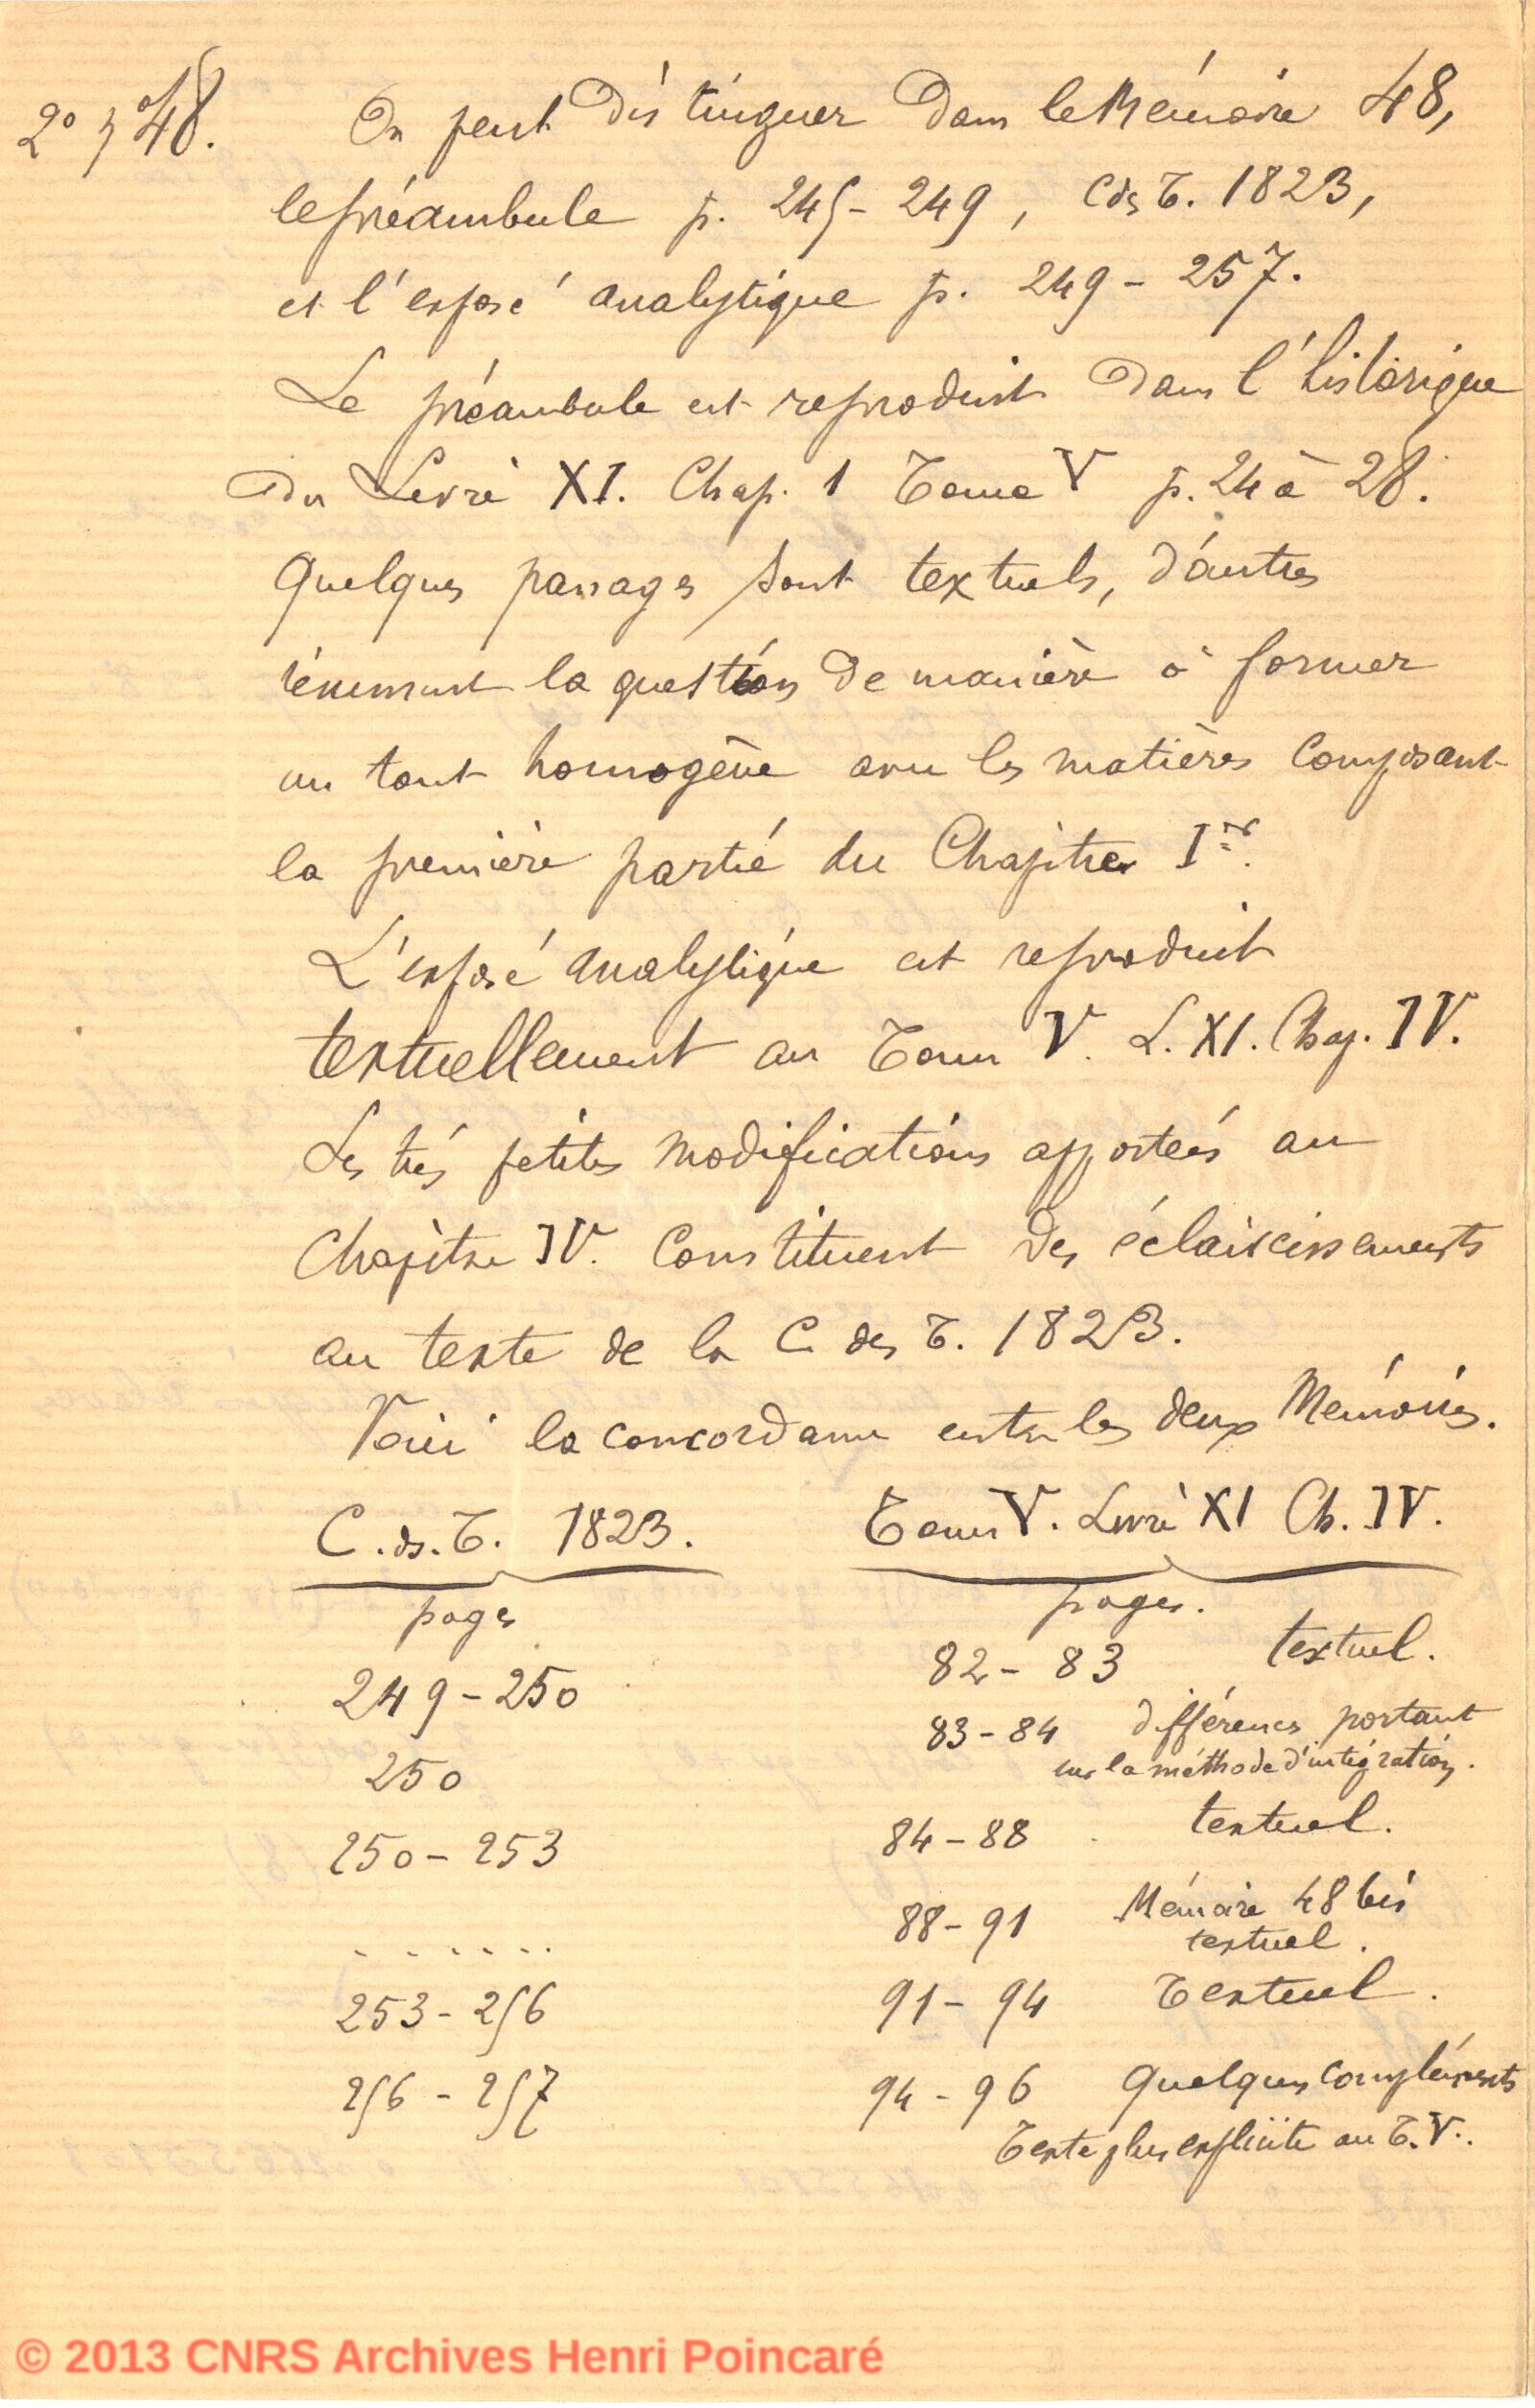 2° n° 48. On peut distinguer dans le Mémoire 48,
le préambule p. 245 - 249, C ds T. 1823,
et l'exposé analytique p. 249 - 257.
Le préambule est reproduit dans l'historique
du Livre XI. Chap. 1 Tome V p. 24 à 28.
Quelques passages sont textuels, d'autres
résument la question de manière à former
un tout homogène avec les matières composant
la première partie du Chapitre Ier.
L'exposé analytique est reproduit
textuellement au Tome V. L. XI. Chap. IV.
Les très petites modifications apportées au
Chapitre IV. constituent des éclaircissements
au texte de la C. des T. 1823.
Voici la concordance entre les deux Mémoires.
C. ds. T. 1823. Tome V. Livre XI Ch. IV.
pages pages.
249 - 250 82 - 83 textuel.
250 83 - 84 différences portant
sur la méthode d'intégration.
250 - 253 84 - 88 textuel.
....... 88 - 91 Mémoire 48 bis
textuel.
253 - 256 91 - 94 Textuel.
256 - 257 94 - 96 Quelques compléments
Texte plus explicite au T. V.
© 2013 CNRS Archives Henri Poincaré